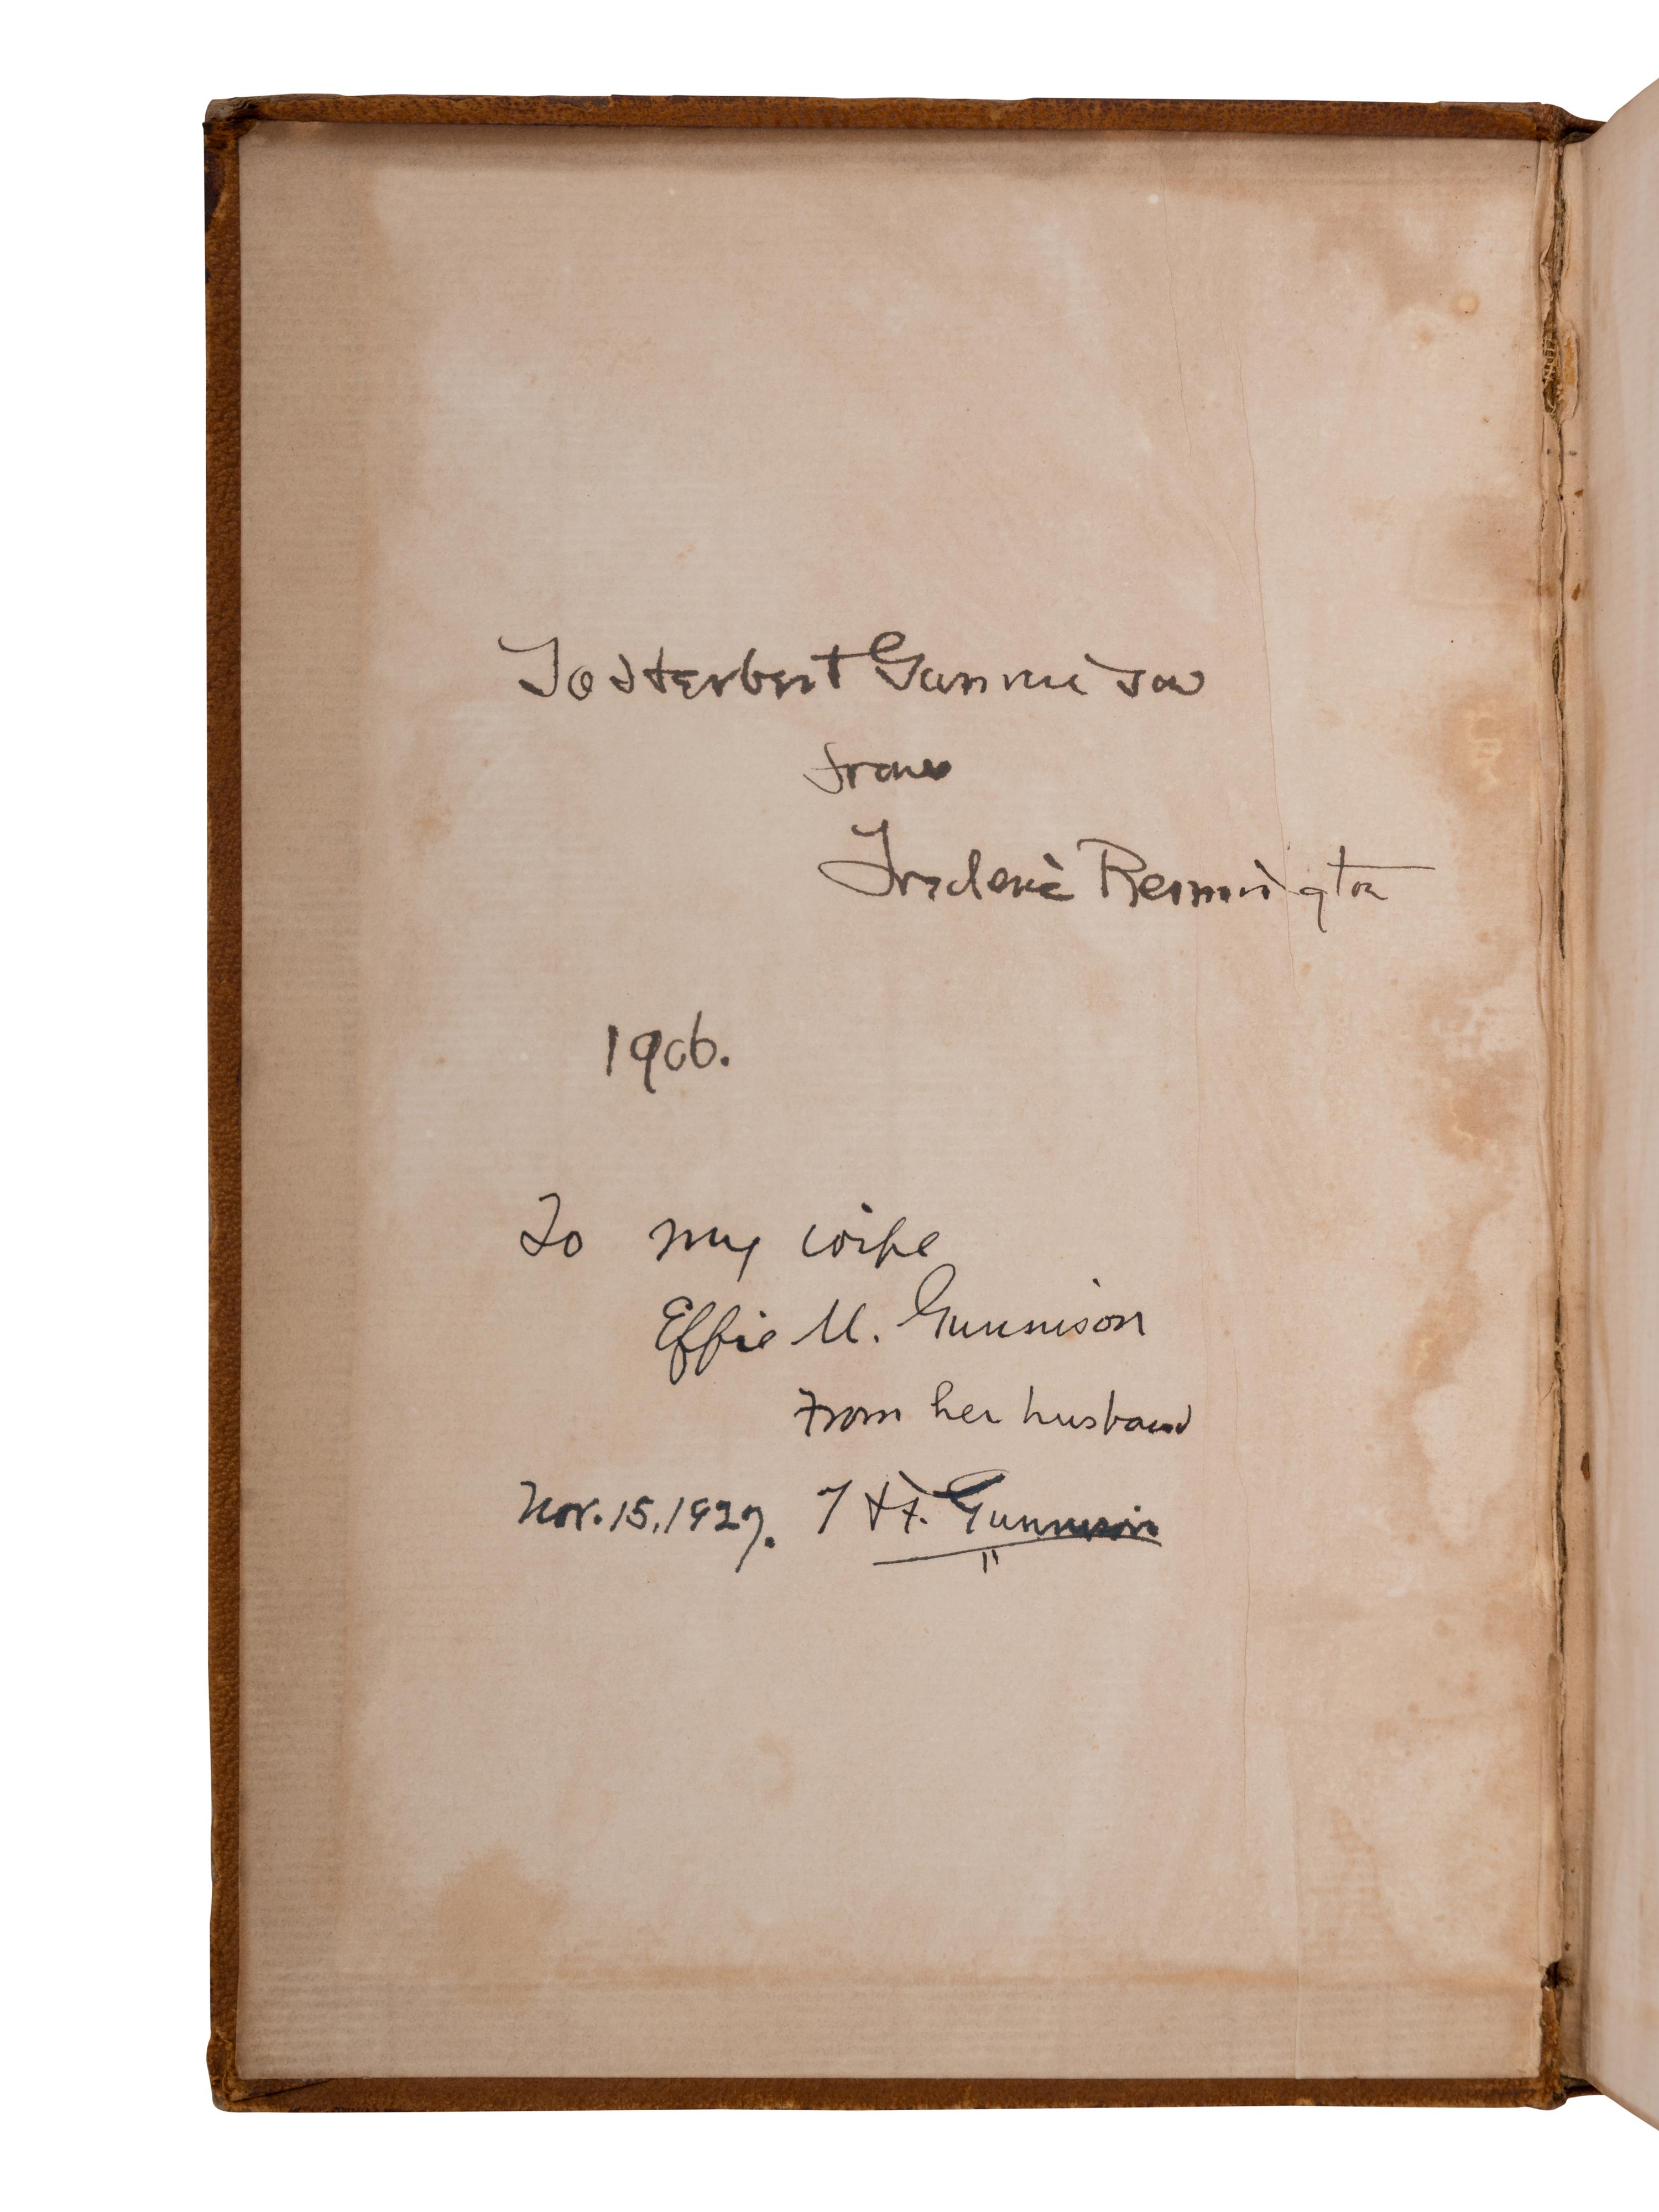 To Herbert Gunnison
from
Frederic Remington
1906.
To my wife
Effie M. Gunnison
From her husband
Nov. 15, 1927. H.F. Gunnison